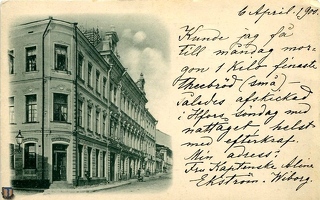 6 April. 1900.
Kunde jag få
till måndag mor-
gon 1 Kilo finaste
thebröd (små) –
således afskickad
i H:fors söndag med
nattåget – helst
med efterkraf.
Min adress:
Fru Kaptenska Aline
Ekström. Wiborg.